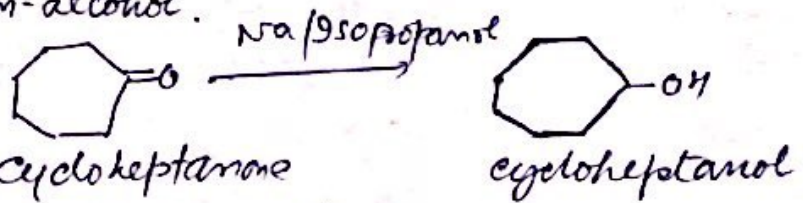 n-alcohol.
Na/Isopropanol
=O
-OH
cycloheptanone
cycloheptanol